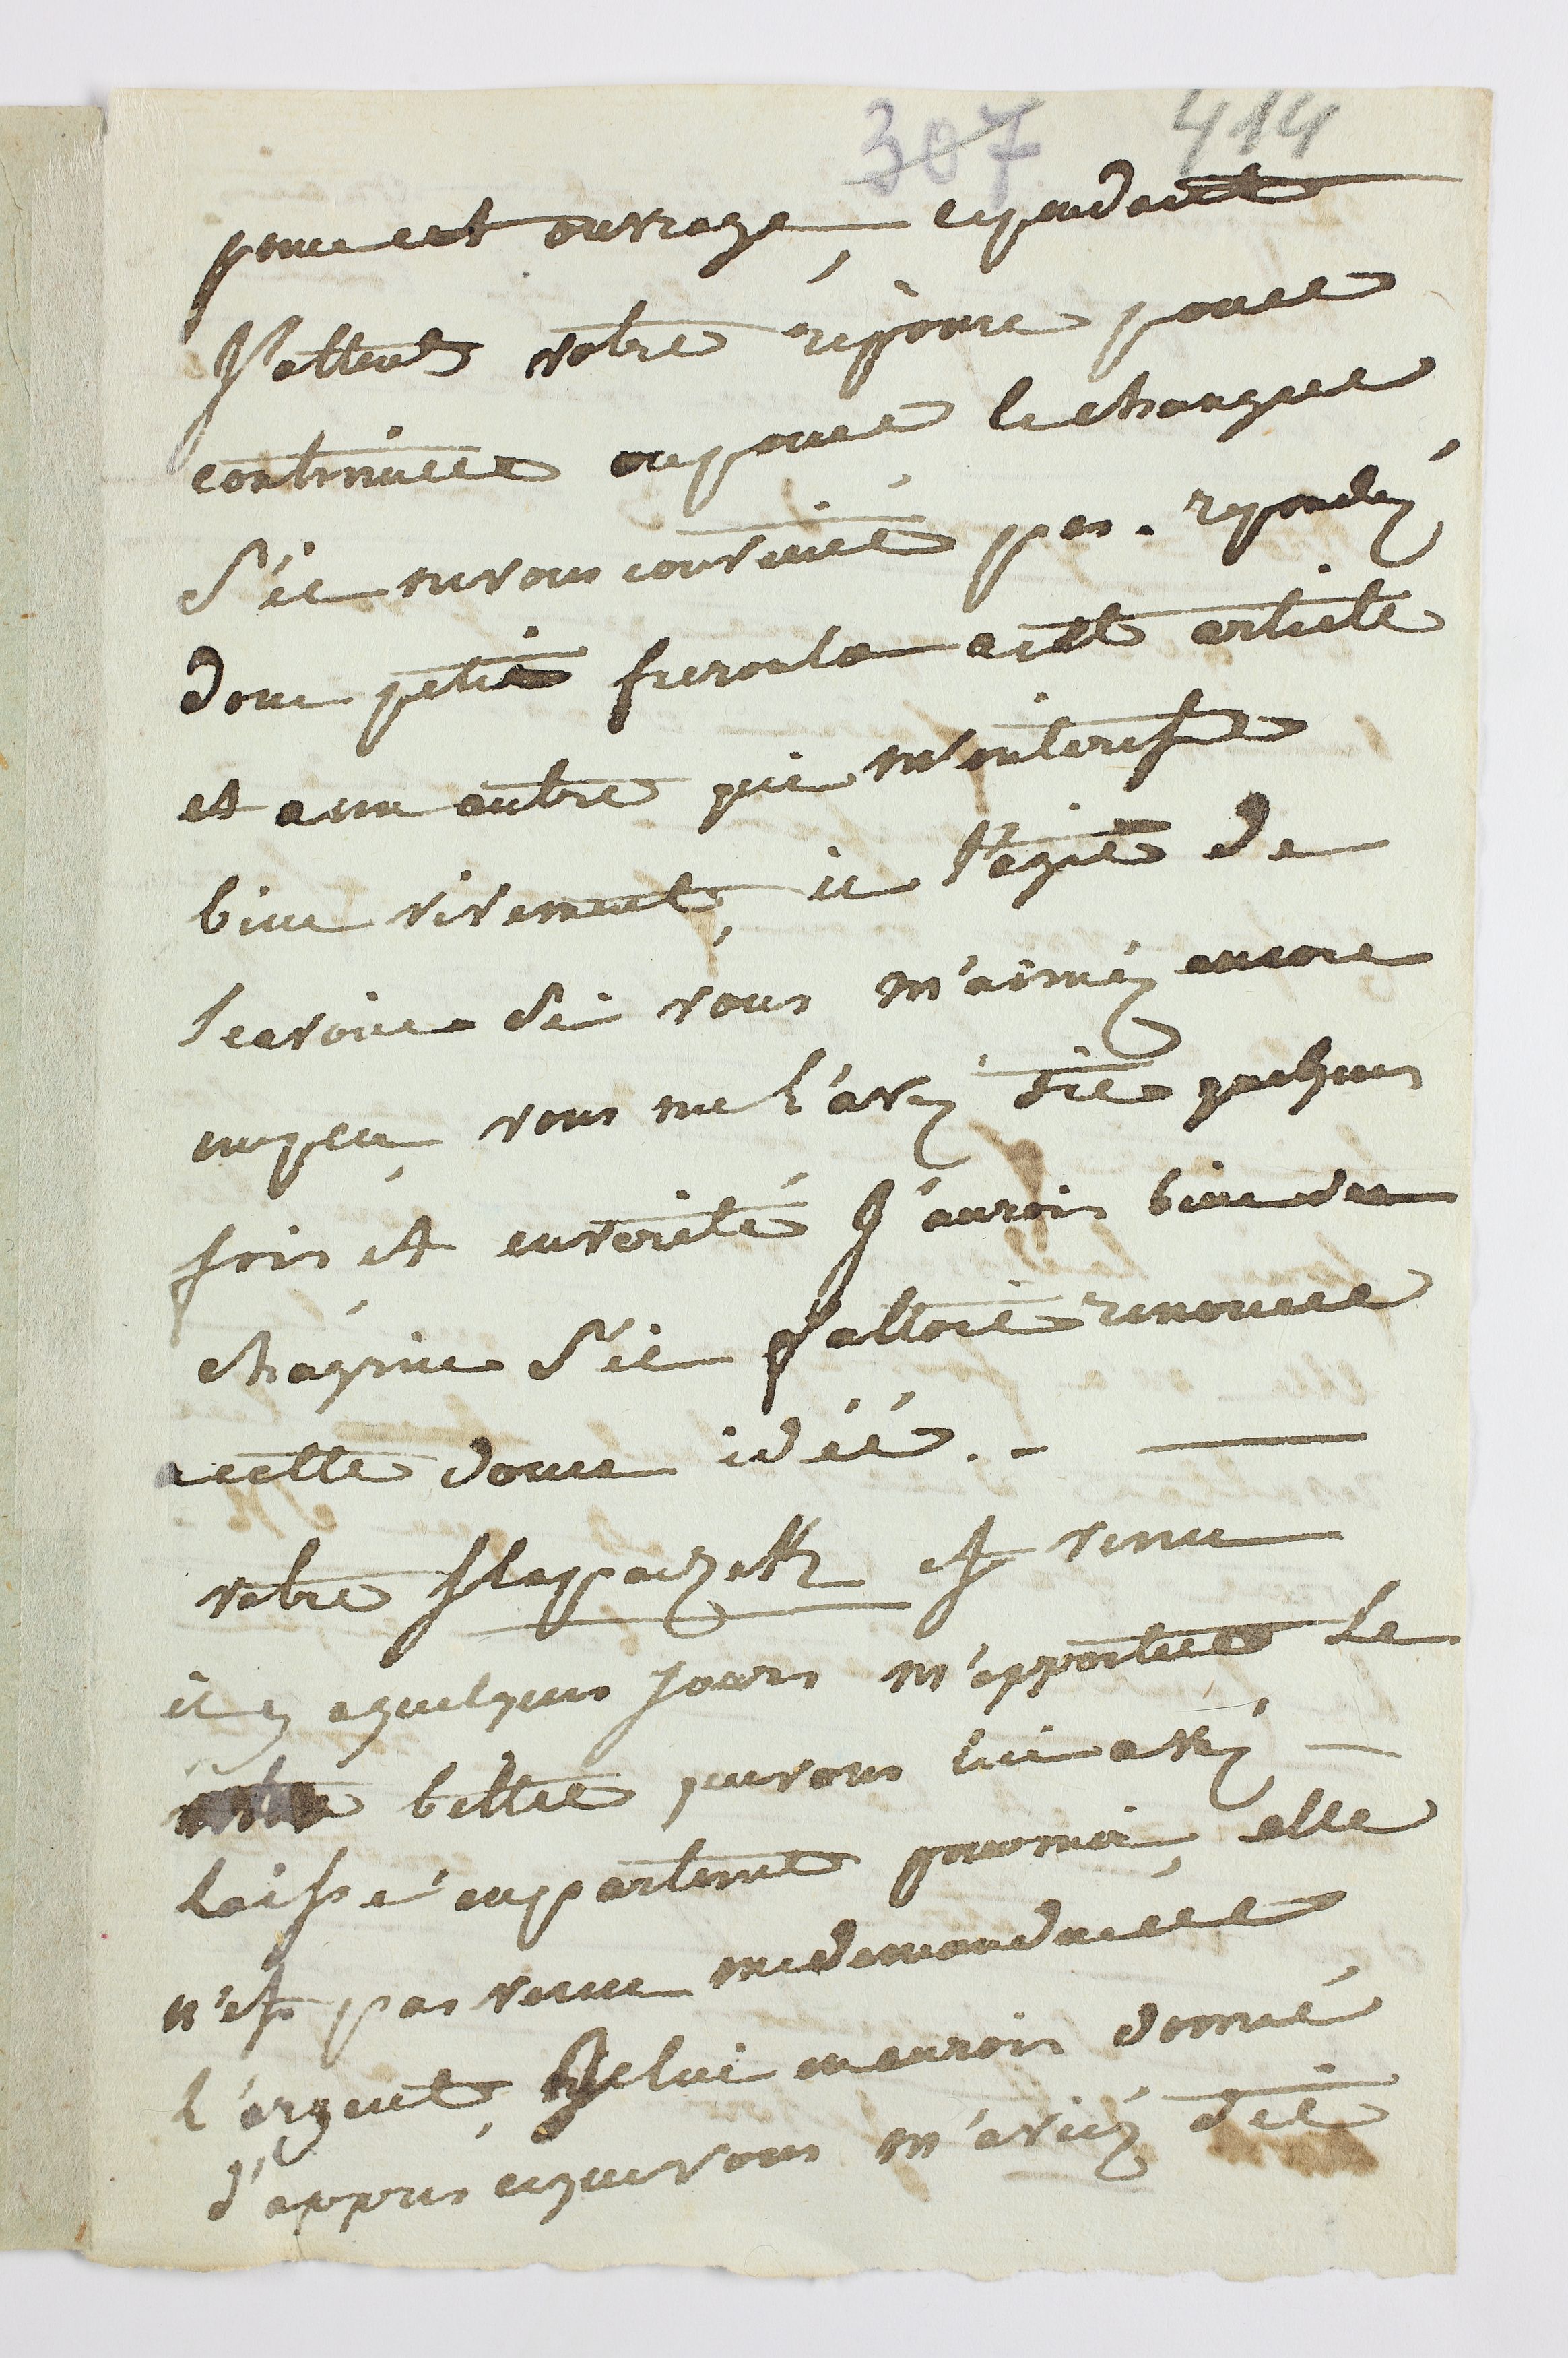 307 414
pour cet ouvrage, cependant
J'attend votre réponse pour
continuer ou pour le changer
S'il ne vous convient pas. repondéz
donc petit frerola a cet article
et a un autre qui m'interesse
bien vivement, il s'agit de
scavoir Si vous m'aiméz encore
un peu, vous me l'avez dit quelques
fois et en verité J'aurois bien du
chágrin S'il falloit renoncer
a cette douce idéé. -
votre slappaizetk est venu
il y a quelques jours m'apporter le
billet que vous lui avéz
laissé en partent pour moi, elle
n'est pas venu me demander
l'argent, Je lui en aurois donné
d'appres ce que vous m'aviéz dit